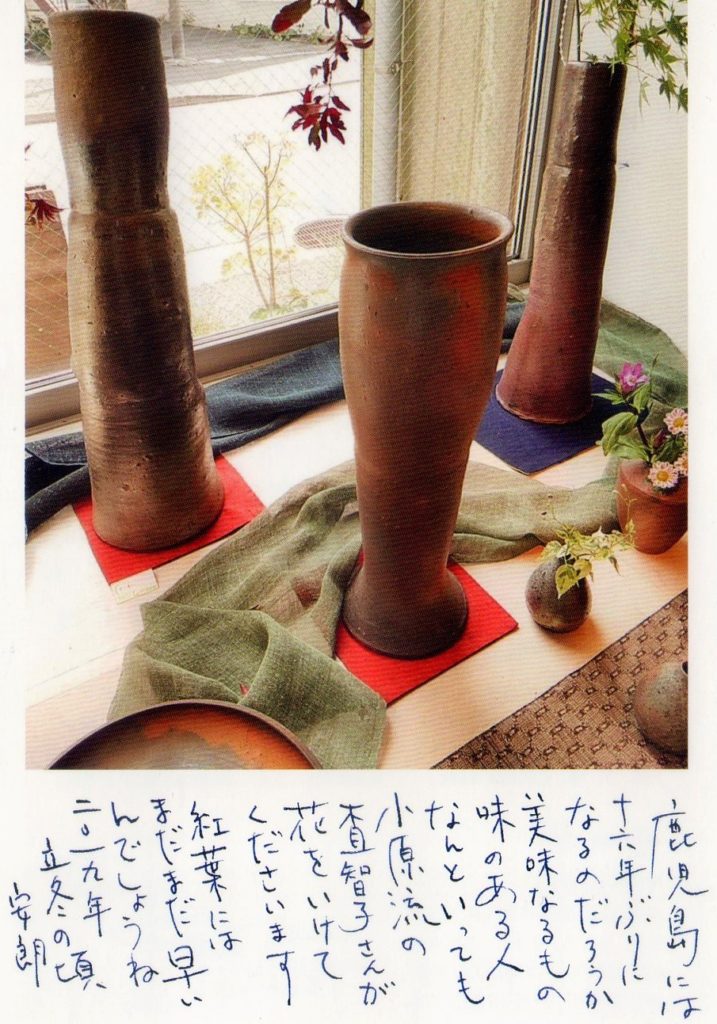 鹿児島には
十六年ぶりに
なるのだろうか
美味なるもの
味のある人
なんといっても
小原流の
直智子さんが
花をいけて
くださいます
紅葉には
まだまだ早い
んでしょうね
二〇一九年
立冬の頃
安朗